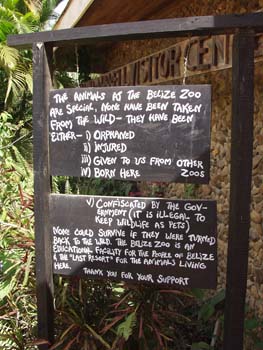 VISITOR CEN
THE ANIMALS AT THE BELIZE ZOO
ARE SPECIAL, NONE HAVE BEEN TAKEN
FROM THE WILD - THEY HAVE BEEN
EITHER - i) ORPHANED
ii) INJURED
iii) GIVEN TO US FROM OTHER
ZOOS
iv) BORN HERE
v) CONFISCATED BY THE GOV-
ERNMENT (IT IS ILLEGAL TO
KEEP WILDLIFE AS PETS)
NONE COULD SURVIVE IF THEY WERE TURNED
BACK TO THE WILD. THE BELIZE ZOO IS AN
EDUCATIONAL FACILITY FOR THE PEOPLE OF BELIZE
& THE "LAST RESORT" FOR THE ANIMALS LIVING
HERE.
THANK YOU FOR YOUR SUPPORT